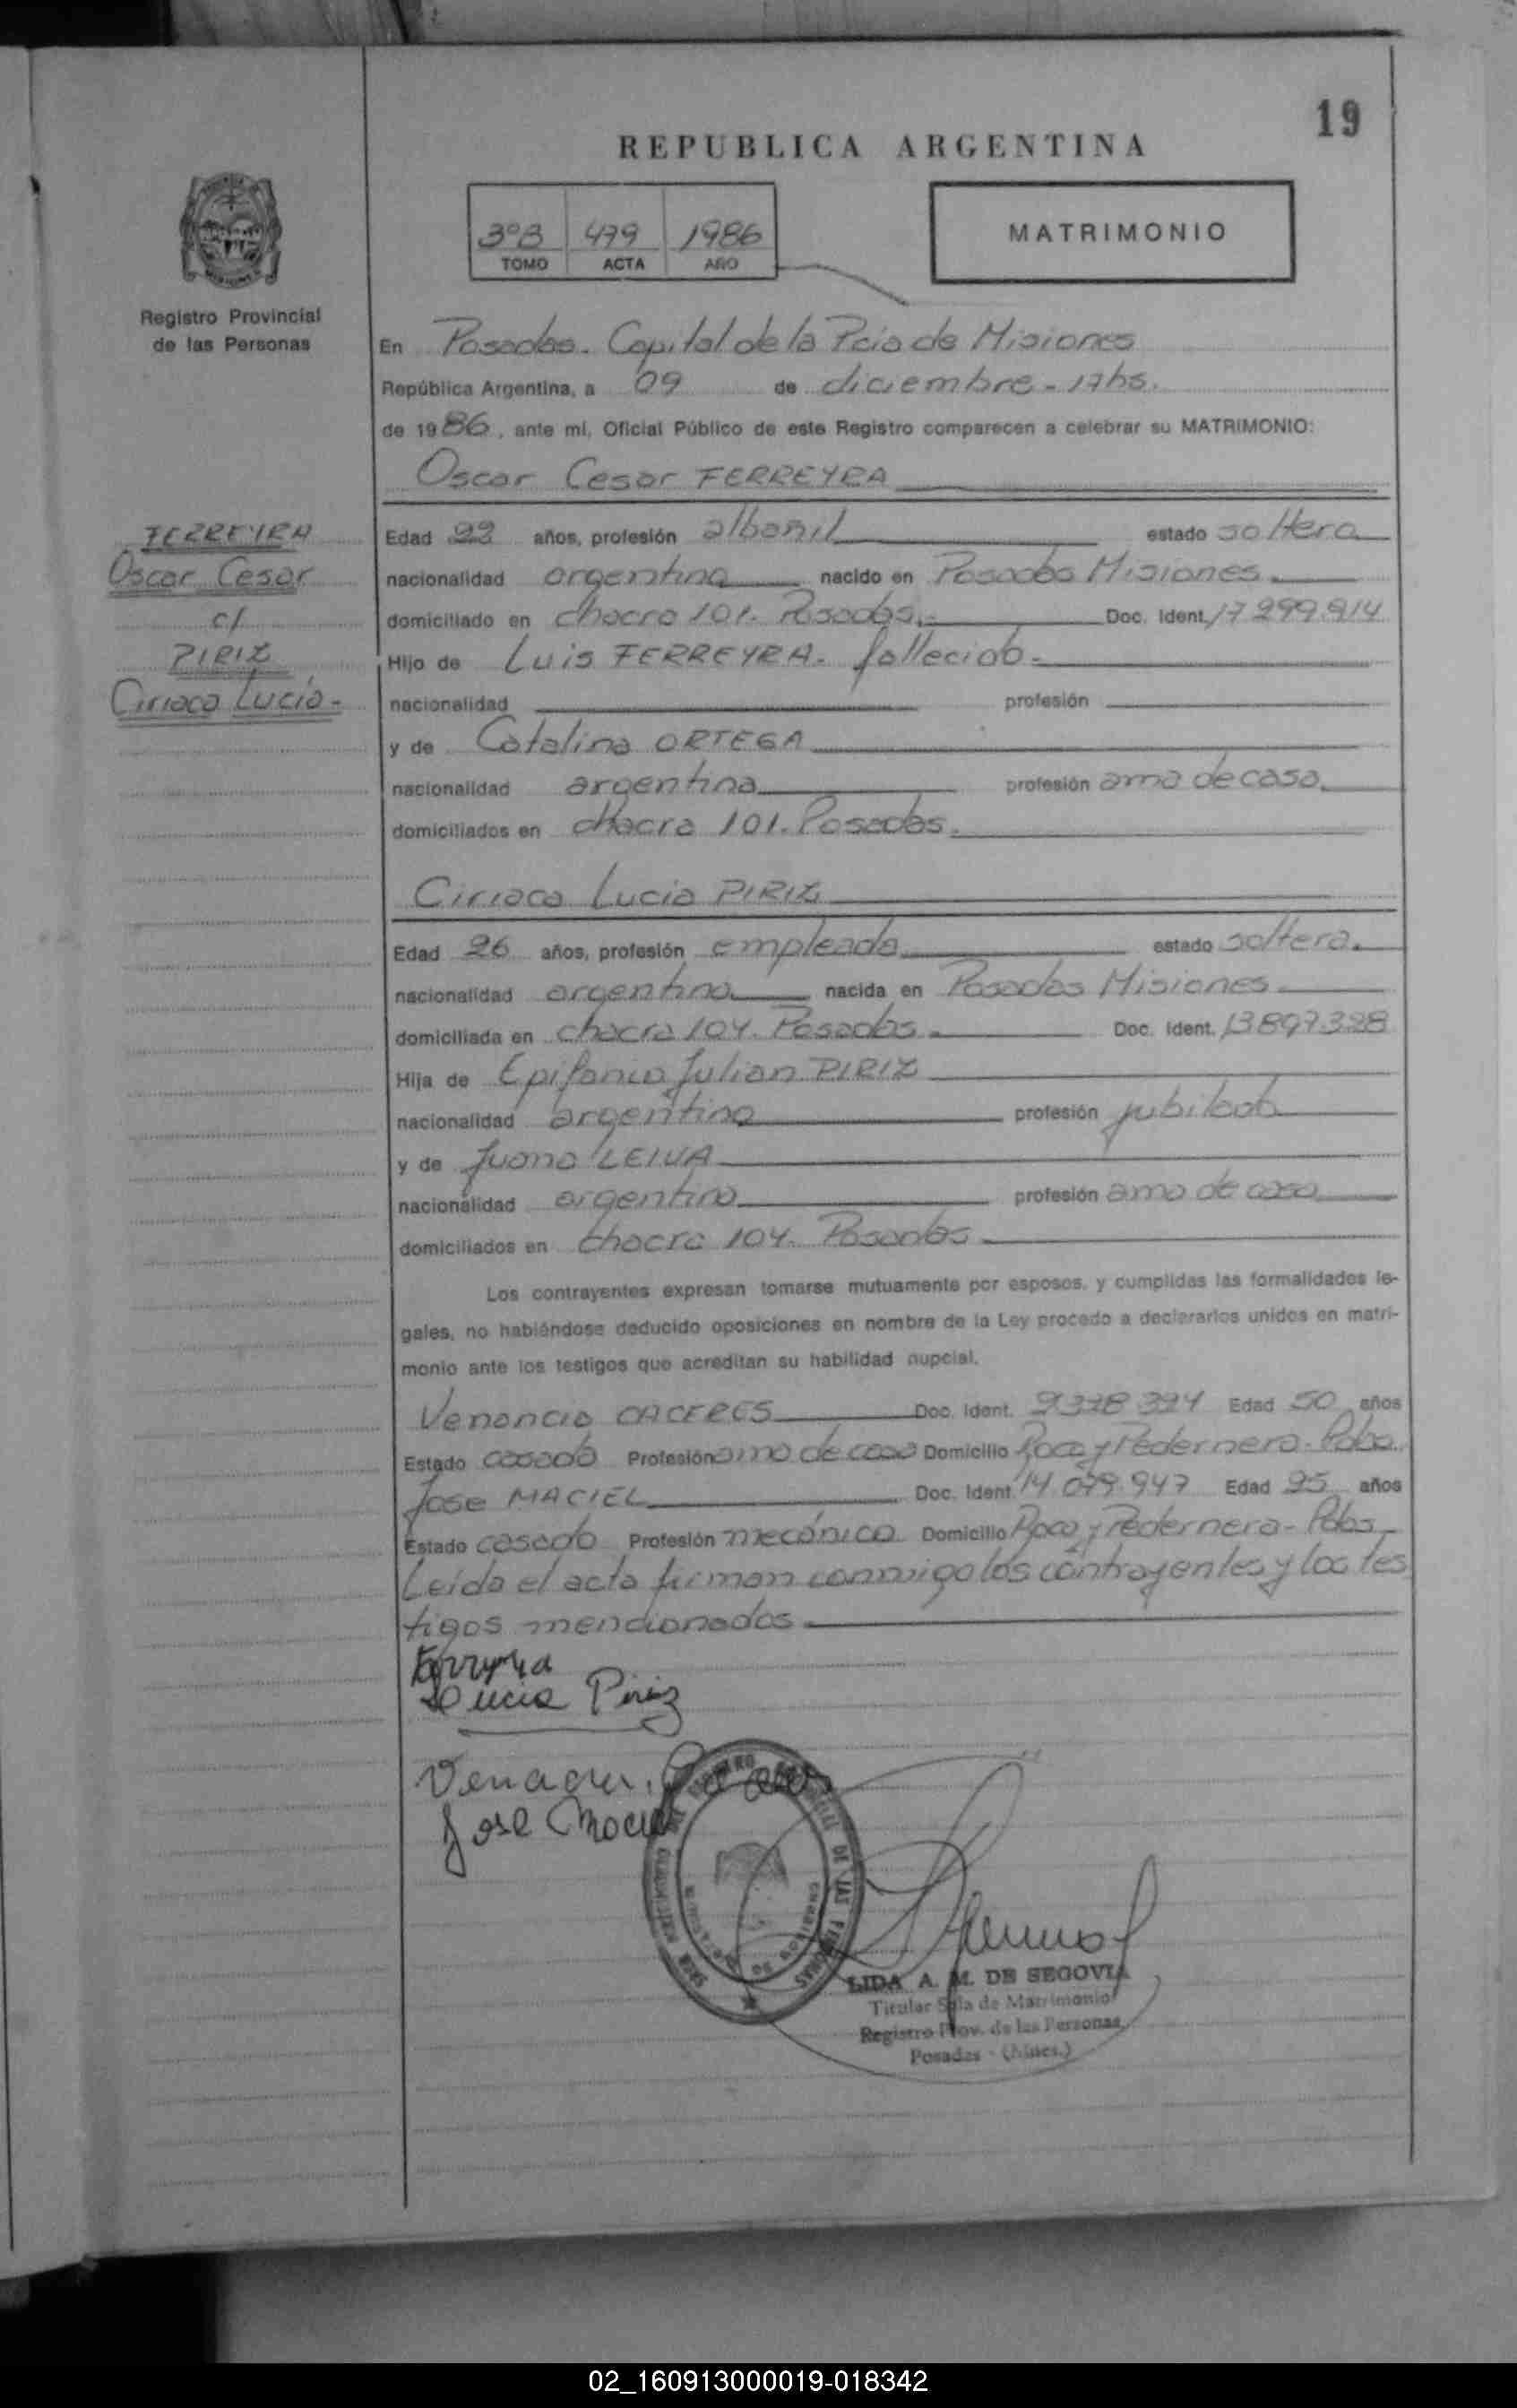 19
REPUBLICA ARGENTINA
3ºB 479 1986
TOMO ACTA AÑO
MATRIMONIO
Registro Provincial
de las Personas
En Posadas. Capital de la Pcia de Misiones
República Argentina, a 09 de diciembre - 17hs.
de 1986, ante mí, Oficial Público de este Registro comparecen a celebrar su MATRIMONIO:
Oscar Cesar FERREYRA
FERREYRA
Oscar Cesar
c/
PIRIZ
Ciriaca Lucia-
Edad años, profesión albañil estado soltero
nacionalidad argentina nacido en Posadas Misiones
domiciliado en chacra 101. Posadas. Doc. Ident. 17.299.914
Hijo de Luis FERREYRA. fallecido-
nacionalidad profesión
y de Catalina ORTEGA
nacionalidad argentina profesión ama de casa.
domiciliados en chacra 101. Posadas.
Ciriaca Lucia PIRIZ
Edad 26 años, profesión empleada estado soltera.
nacionalidad argentina nacida en Posadas Misiones
domiciliada en chacra 104. Posadas. Doc. Ident. 13897.328
Hija de Epifanio Julian PIRIZ
nacionalidad argentina profesión jubilado
y de Juana LEIVA
nacionalidad argentina profesión ama de casa
domiciliados en chacra 104. Posadas
Los contrayentes expresan tomarse mutuamente por esposos, y cumplidas las formalidades le-
gales, no habiéndose deducido oposiciones en nombre de la Ley procedo a declararlos unidos en matri-
monio ante los testigos que acreditan su habilidad nupcial.
Venancia CACERES Doc. Ident. Edad 50 años
Estado casada Profesión ama de casa Domicilio Roca y Pedernera-
Jose MACIEL Doc. Ident. 14.079.947 Edad 25 años
Estado casado Profesión mecánico Domicilio Roca y Pedernera- Pdas
Leída el acta firman conmigo los contrayentes y los tes
tigos mencionados
Ferreyra
Lucia Piriz
Jose Maciel
LIDA A. M. DE SEGOVIA
Titular Sala de Matrimonio
Registro Prov. de las Personas
Posadas - (Mnes.)
02_160913000019-018342